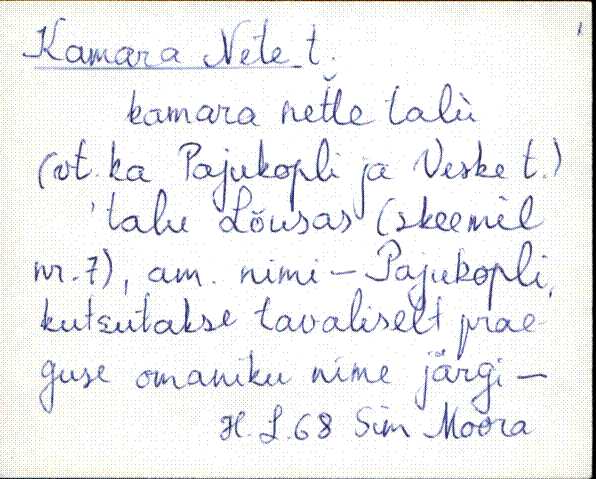 Kamara Nete t.
kamara net̆te talù
(vt. ka Pajukopli ja Veske t.)
'talu Lõusas (skeemil
nr. 7), am. nimi – Pajukopli,
kutsutakse tavaliselt prae-
guse omaniku nime järgi –
H. L. 68 Sim Moora